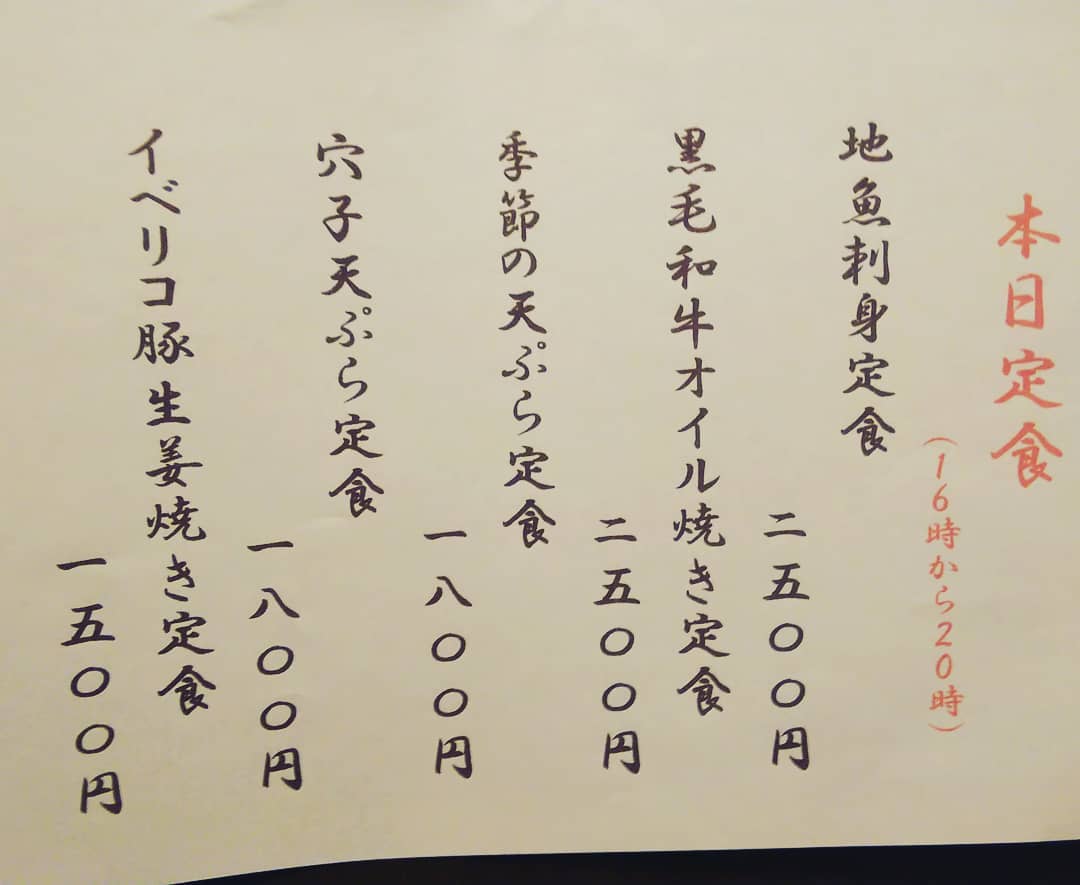 本日定食
(16時から20時)
地魚刺身定食
二五〇〇円
黒毛和牛オイル焼き定食
二五〇〇円
季節の天ぷら定食
一八〇〇円
穴子天ぷら定食
一八〇〇円
イベリコ豚生姜焼き定食
一五〇〇円